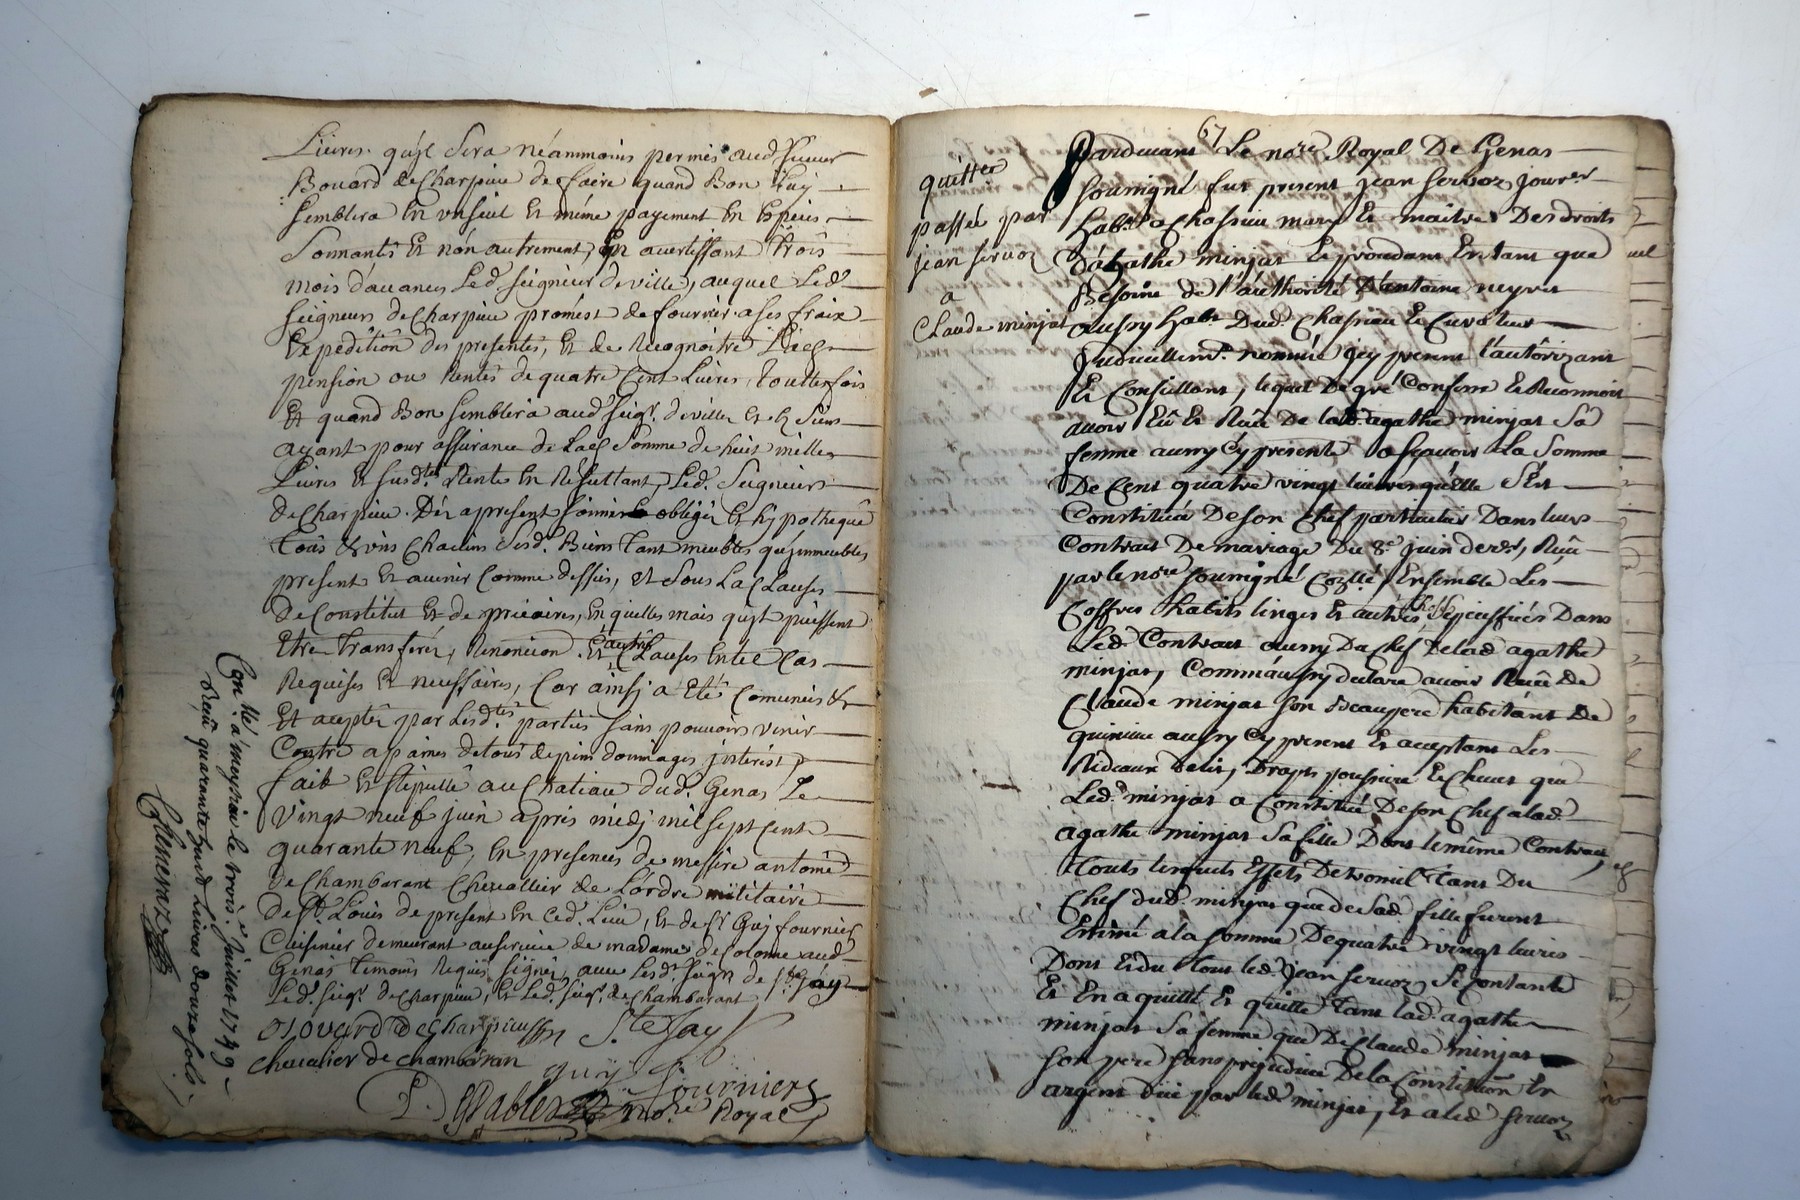 Livres. qu'jl Sera néammoins permis aud. sieur
Bouard de Charpieu de faire quand Bon Luy
Semblera En un seul Et méme payement En Espéces
Sonnantes Et nón autrement, En avertissant trois
mois d'avances Led. seigneur deville, auquel Led.
seigneur de Charpieu promést de fournir a ses fraix
Expedition des presentes, Et de Recognoitre
pension ou Rente de quatre Cent Livres, Touttesfois
Et quand Bon Semblera aud. seigr. deville et
ayant pour assurance de Somme de huit milles
Livres Et susd.tes Rente En Résultant, Led. Seigneur
de Charpieu. Dés apresent obligé Et hypothequé
Tous Chacuns Sesd. Biens tant meubles qu'jmmeubles
present Et avenir Comme dessus, et Sous La Clauses
De Constitut Et de précaires, En quelles mais qu'jl puissent
Etre Transferés, Renonciaon. Et autres Clauses En tel Cas
Requises Et necessaires, Car ainsj a Eté Convenus
Et acepté par Lesd.tes parties sans pouvoir venir
Contre a paines de tous depens dommages jnterist,
fait Et stipullé au Chatiau dud. Genas Le
Vingt neuf juin apris médj mil sept Cent
quarante neuf, En presences de messire antoine
de Chambarant Chevallier de L'ordre militaire
De St. Louis de present En Ced. Lieu, Et de Sr. Guj fournier
Cuisinier demeurant auservice de madame de Colonne aud.
Genas temoins Requis signés, avec Lesd. seign de Ste. Jay
Led. seigr. de Charpieu, Et Led. seigr. de Chambarant
Bovard De Charpieu Ste Jay
chevalier de chambaran
guy fourniers
nore Royal
Con.lé a meysieu le trois.e Juillet 1749
Reçu quarante huit Livres douze sols
Clemenz
67
quittce
passée par
jean servoz
a
Claude minjat
Pardevant Le nore Royal De Genas
soussigné fut present jean Servoz Jour.er
hab. a Chassieu mary Et maitre Des droits
D'agathe minjat Et procedant En tant que
Besoins de l'authorité D'antoine neyret
aussy hab. Dud. Chassieu Et Curateur
Judicellem.t nommé jcy present l'autôrizant
Et Conseillant, lequel De gré Confesse Et Reconnoit
avoir Eû Et Reçû De lad. agathe minjat Sa
femme aussy Cy presente a sçavoir La Somme
De Cent quatre vingt livres qu'elle S'est
Constituée De son Chef particulier Dans leurs
Contrat De mariage Du 8.e juin der.r, Reçû
par le nore soussigné Ensemble Les
Coffres habits linges Et autres Speciffiés Dans
Led. Contrat aussy Du Chef De lad. agathe
minjat, Comm'aussy declare avoir Receu De
Claude minjat Son Beaupere habitant De
aussy Cy present Et aceptant Les
Rideaux De lit, Draps Et que
Led. minjat a Constitué De son Chef a lad.
agathe minjat Sa fille Dans le même Contrat,
Touts lesquels Effets tant Du
Chef dud. minjat que de Sad. fille furent
Estimé a la somme De quatre vingt livres
Dont Et du tout led. jean Servoz Se Contante
Et En a quitté Et quitte tant lad. agathe
minjat Sa femme que De Claude minjat
Son pere sans prejudice De la Constitution En
argent düe par led. minjat, Et a led. Servoz